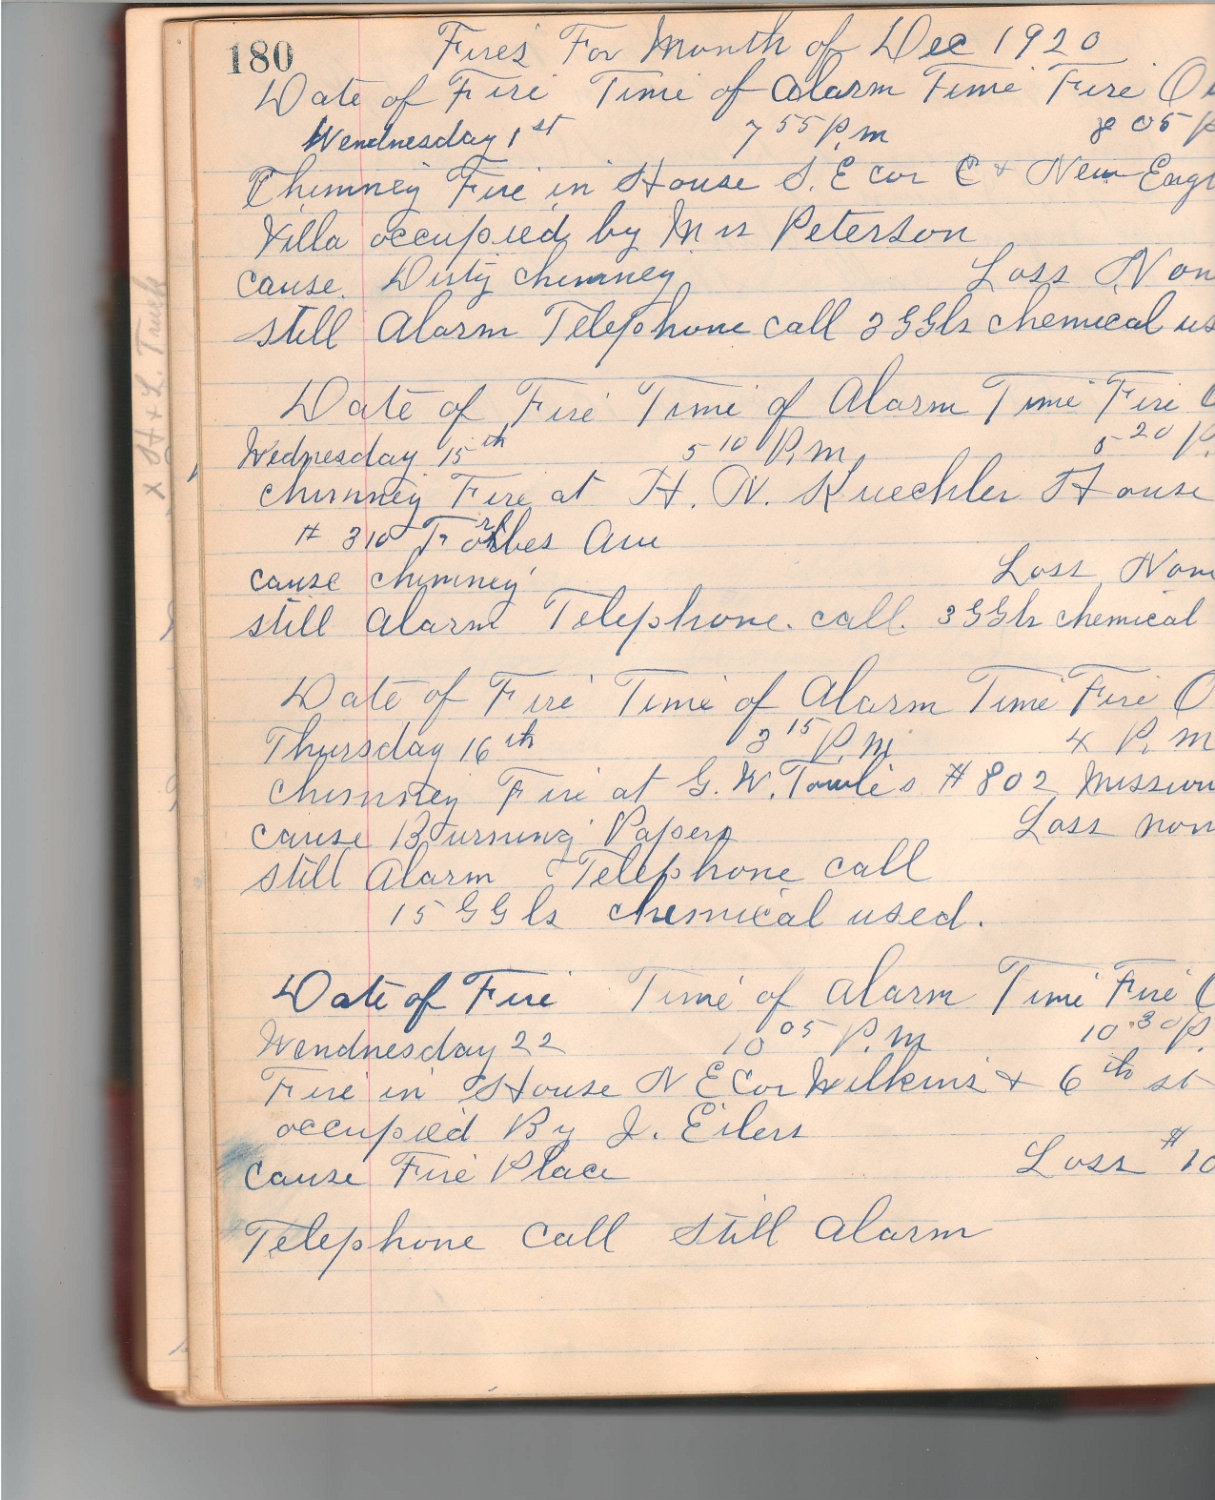 180
Fires For Month of Dec 1920
Date of Fire Time of Alarm Time Fire O
Wendnesday 1st 7 55 P.m 8 05 P
Chimney Fire in House S. E cor C + New Eng
Villa occupied by Mrs Peterson
cause. Dirty chimney Loss Non
still Alarm Telephone call 3 GGls chemical us
Date of Fire Time of Alarm Time Fire O
Wednesday 15th 5 10 P.m. 5 20 P.
chimney Fire at H. N. Kuechler House
# 310 Forbes Ave
cause chimney Loss Non
still Alarm Telephone. call. 3 GGls chemical
Date of Fire Time of Alarm Time Fire O
Thursday 16th 3 15 P.m. 4 P. m
chimney Fire at G. W. Towle's # 802 Mission
cause Burning Papers Loss non
still Alarm Telephone call
15 GGls chemical used.
Date of Fire Time of Alarm Time Fire O
Wendnesday 22 10 05 P.m 10.30 P.
Fire in House N E Cor Wilkins + 6th st
occupied By J. Eilers
cause Fire Place Loss # 10
Telephone call still alarm
x H + L. Truck